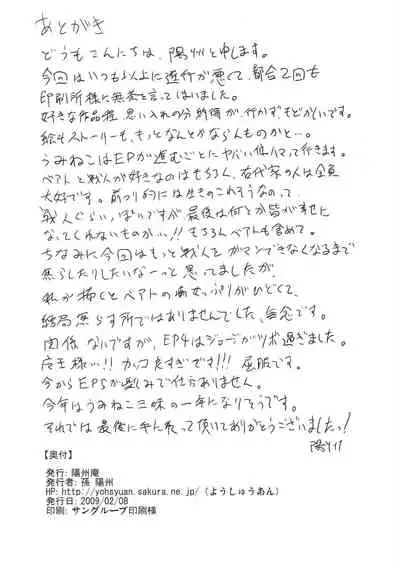 あとがき
どうもこんにちは、陽州と申します。
今回はいつも以上に進行が悪くて、都合2回も
印刷所様に無茶を言ってしまいました。
好きな作品程、思い入れの分納得が行かずもどかしいです。
絵もストーリーも、もっとなんとかならんものかと…。
うみねこはEPが進むごとにヤバい位ハマって行きます。
ベアトと戦人が好きなのはもちろん、右代宮の人は全員
大好です。前フリ的には生きのこれそうなのって、
戦人ぐらいっぽいですが最後は何とか皆が幸せに
なってくれないものか…!! もちろんベアトも含めて。
ちなみに今回はもっと戦人を ガマンできなくなるまで
焦らしたりしたいなーっと思ってましたが、
私が描くとベアトの痴女っぷりがひどくて、
結局焦らす所ではありませんでした、無念です。
関係ないですが、EP4はジョージがツボ過ぎました。
店主様…!! カッコ良すぎです!!! 屈服です。
今からEP5が楽しみで仕方ありません。
今年はうみねこ三昧の一年になりそうです。
それでは最後に手に取って頂いてありがとうございましたっ!
陽州
【奥付】
発行: 陽州庵
発行者: 孫 陽州
HP: http://yohsyuan.sakura.ne.jp/ (ようしゅうあん)
発行日: 2009/02/08
印刷: サングループ印刷様